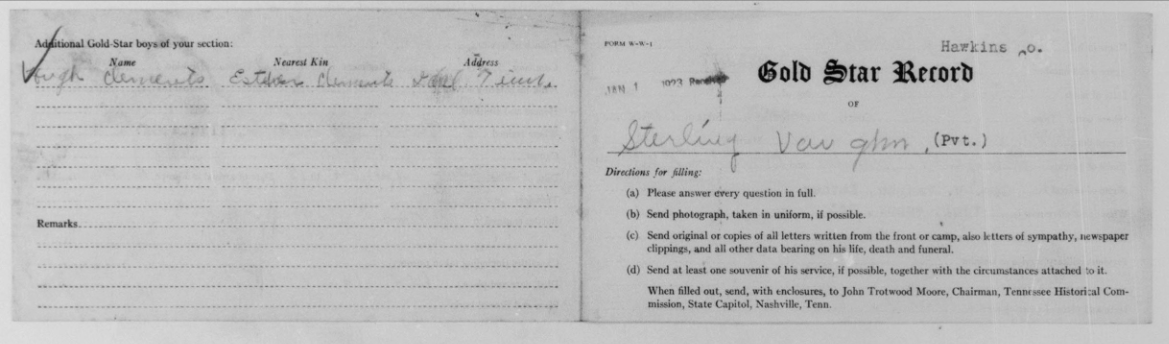 Additional Gold-Star boys of your section:
Name Nearest Kin Address
Hugh Clements Esther Clements
Remarks.
FORM W-W-1
Hawkins o.
JAN 1 1923
Gold Star Record
OF
Sterling Vaughn, (Pvt.)
Directions for filling:
(a) Please answer every question in full.
(b) Send photograph, taken in uniform, if possible.
(c) Send original or copies of all letters written from the front or camp, also letters of sympathy, newspaper
clippings, and all other data bearing on his life, death and funeral.
(d) Send at least one souvenir of his service, if possible, together with the circumstances attached to it.
When filled out, send, with enclosures, to John Trotwood Moore, Chairman, Tennessee Historical Com-
mission, State Capitol, Nashville, Tenn.